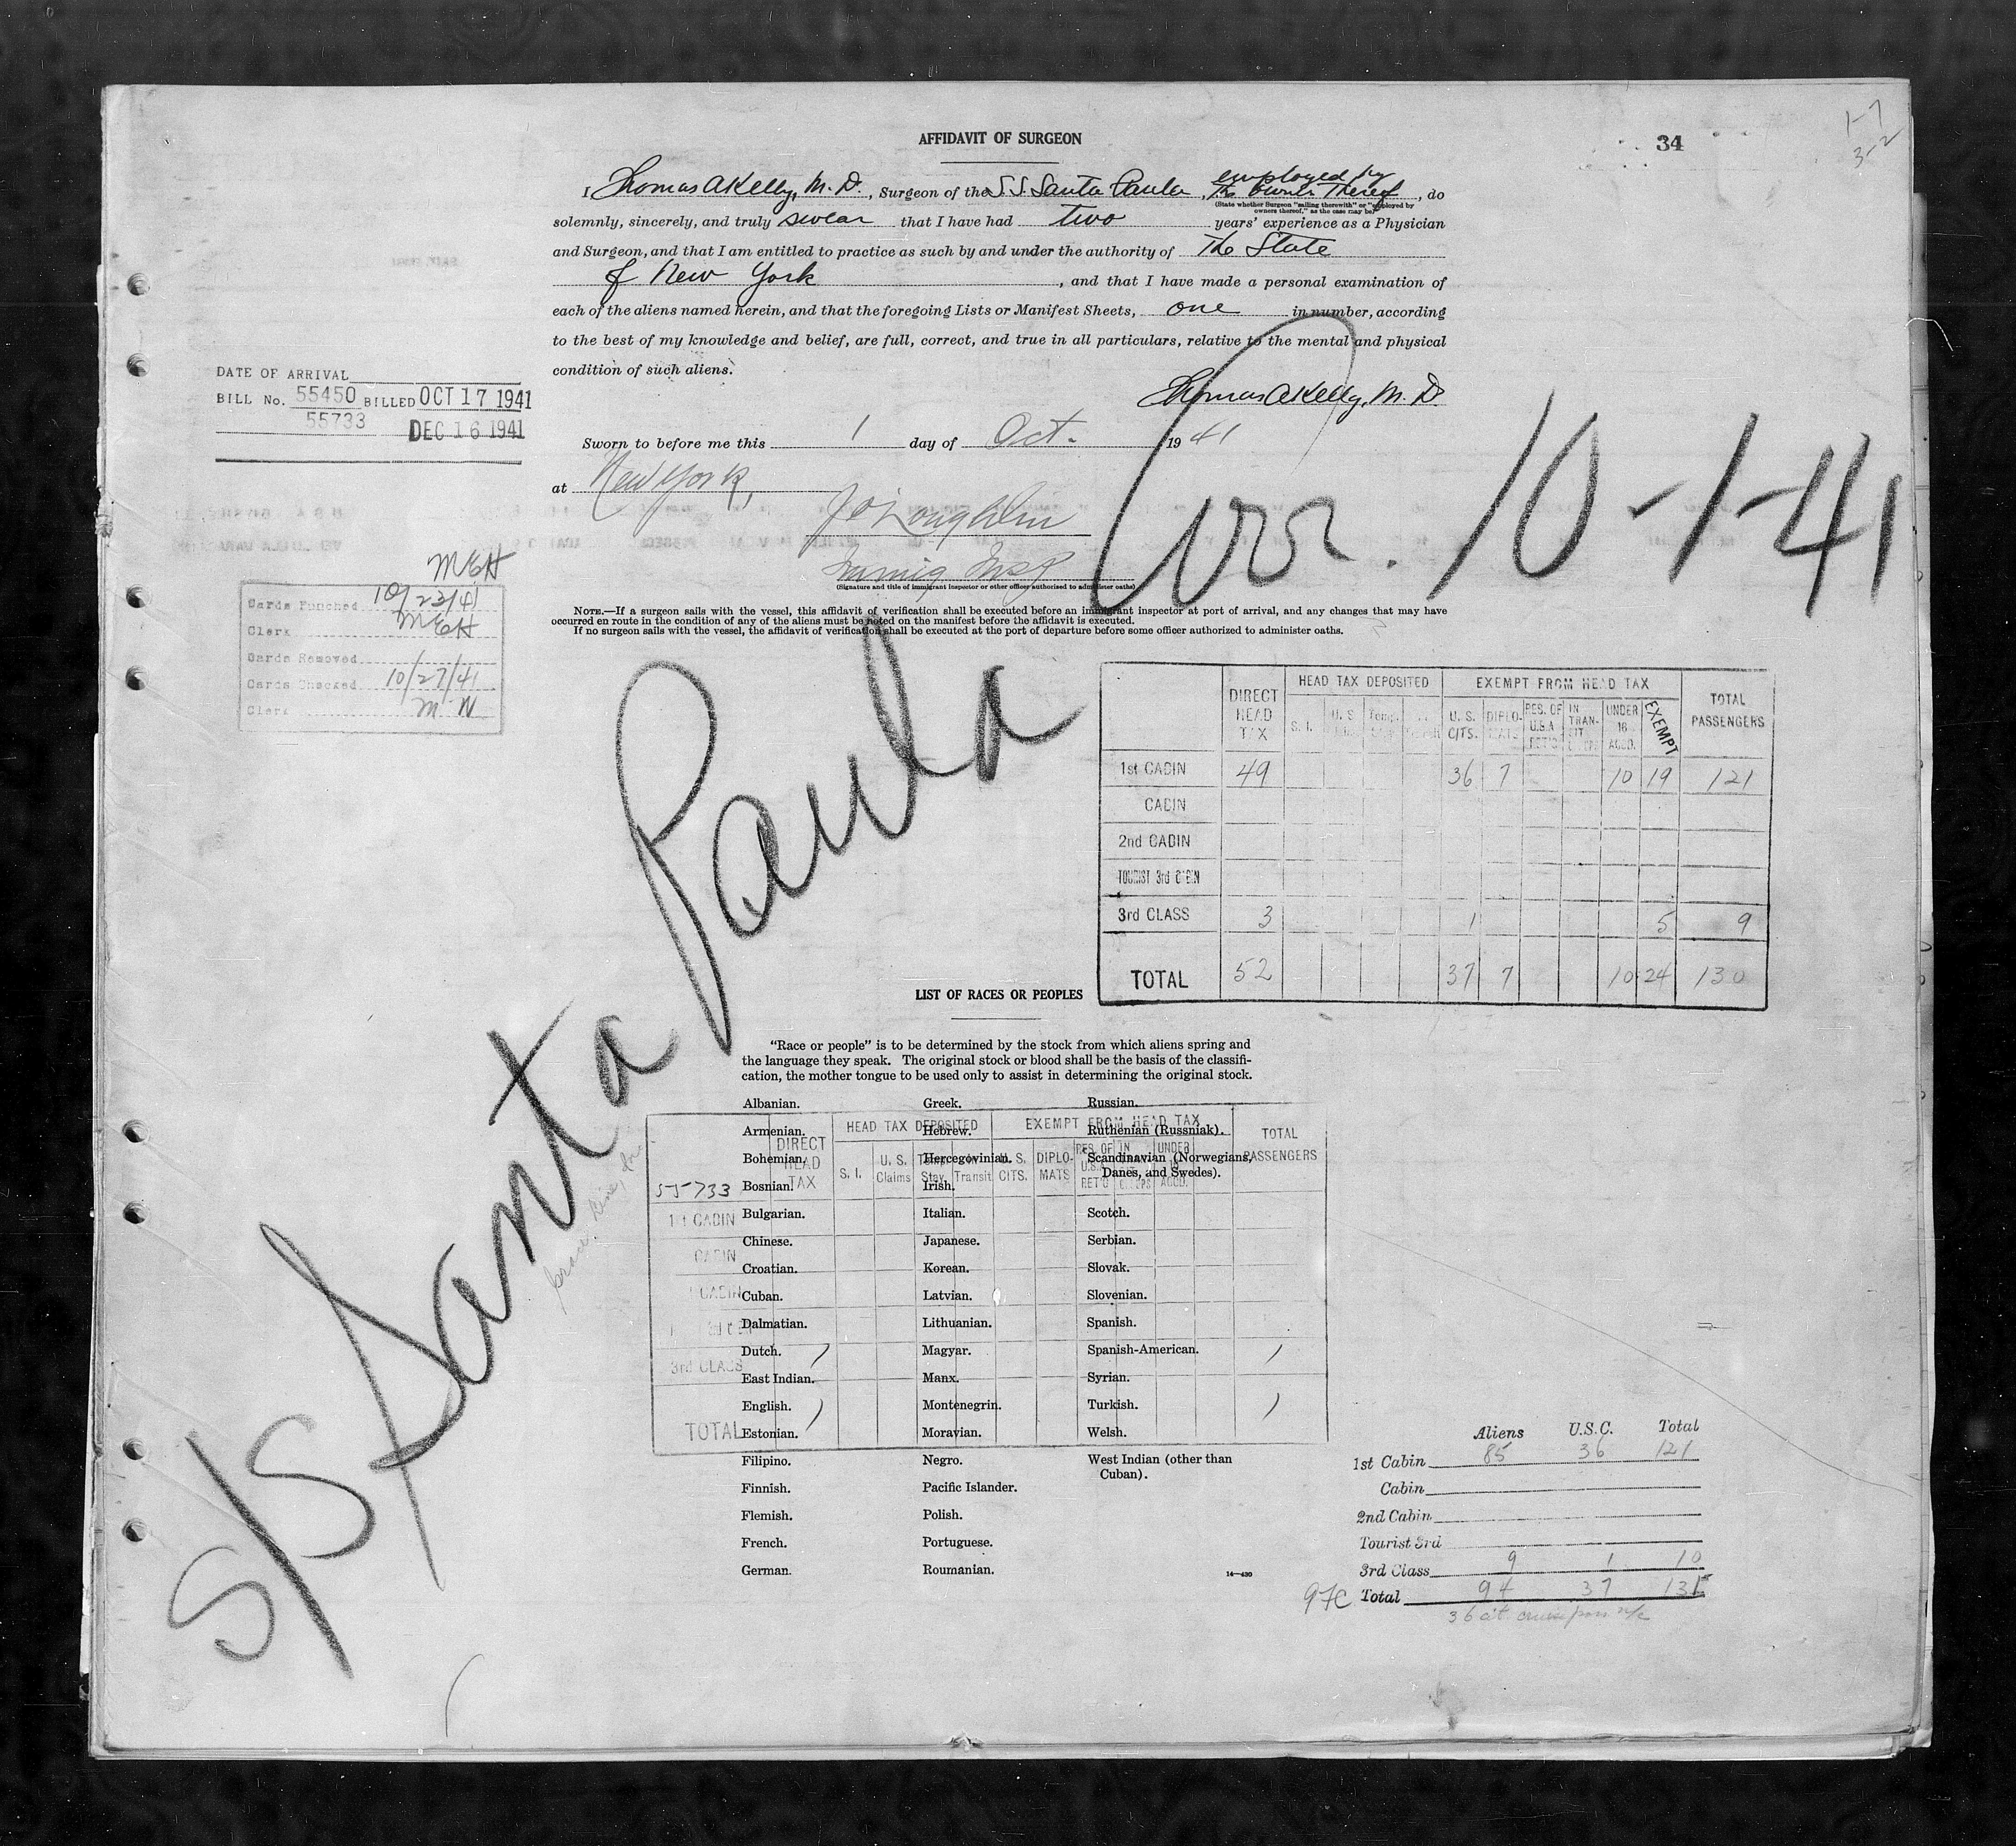 1-7
3-2
34
AFFIDAVIT OF SURGEON
I, Thomas A Kelly, M. D., Surgeon of the S.S. Santa Paula, employed by the owner thereof, do
(State whether Surgeon "sailing therewith" or "employed by owners thereof," as the case may be)
solemnly, sincerely, and truly swear that I have had two years' experience as a Physician
and Surgeon, and that I am entitled to practice as such by and under the authority of The State
of New York, and that I have made a personal examination of
each of the aliens named herein, and that the foregoing Lists or Manifest Sheets, one in number, according
to the best of my knowledge and belief, are full, correct, and true in all particulars, relative to the mental and physical
condition of such aliens.
Thomas A Kelly, M. D.
DATE OF ARRIVAL
BILL No. 55450 BILLED OCT 17 1941
55733 DEC 16 1941
Sworn to before me this 1 day of Oct. 1941
at New York,
J O'Loughlin
Immig Insp
(Signature and title of immigrant inspector or other officer authorized to administer oaths)
Arr. 10-1-41
NOTE.—If a surgeon sails with the vessel, this affidavit of verification shall be executed before an immigrant inspector at port of arrival, and any changes that may have
occurred en route in the condition of any of the aliens must be noted on the manifest before the affidavit is executed.
If no surgeon sails with the vessel, the affidavit of verification shall be executed at the port of departure before some officer authorized to administer oaths.
MEH
Cards Punched 10/23/41
Clerk MEH
Cards Removed
Cards Checked 10/27/41
Clerk M N
S/S Santa Paula
DIRECT HEAD TAX HEAD TAX DEPOSITED EXEMPT FROM HEAD TAX TOTAL PASSENGERS
S. I. U. S. Temp. U. S. CITS. DIPLOMATS RES. OF U.S.A RET'G IN TRANSIT UNDER 16 ACCD. EXEMPT
1st CABIN 49 36 7 10 19 121
CABIN
2nd CABIN
TOURIST 3rd CABIN
3rd CLASS 3 1 5 9
TOTAL 52 37 7 10 24 130
LIST OF RACES OR PEOPLES
"Race or people" is to be determined by the stock from which aliens spring and
the language they speak. The original stock or blood shall be the basis of the classifi-
cation, the mother tongue to be used only to assist in determining the original stock.
Albanian.
Armenian.
Bohemian.
Bosnian.
Bulgarian.
Chinese.
Croatian.
Cuban.
Dalmatian.
Dutch.
East Indian.
English.
Estonian.
Filipino.
Finnish.
Flemish.
French.
German.
Greek.
Hebrew.
Hercegovinian.
Irish.
Italian.
Japanese.
Korean.
Latvian.
Lithuanian.
Magyar.
Manx.
Montenegrin.
Moravian.
Negro.
Pacific Islander.
Polish.
Portuguese.
Roumanian.
Russian.
Ruthenian (Russniak).
Scandinavian (Norwegians,
Danes, and Swedes).
Scotch.
Serbian.
Slovak.
Slovenian.
Spanish.
Spanish-American.
Syrian.
Turkish.
Welsh.
West Indian (other than
Cuban).
14—430
DIRECT HEAD TAX HEAD TAX DEPOSITED EXEMPT FROM HEAD TAX TOTAL PASSENGERS
S. I. U. S. Claims Temp. Stay Transit U. S. CITS. DIPLOMATS RES. OF U.S.A RET'G IN UNDER ACCD.
55733
1st CABIN
CABIN
CABIN
3rd CLASS 1 1
TOTAL 1 1
Aliens U.S.C. Total
1st Cabin 85 36 121
Cabin
2nd Cabin
Tourist 3rd
3rd Class 9 1 10
97C Total 94 37 131